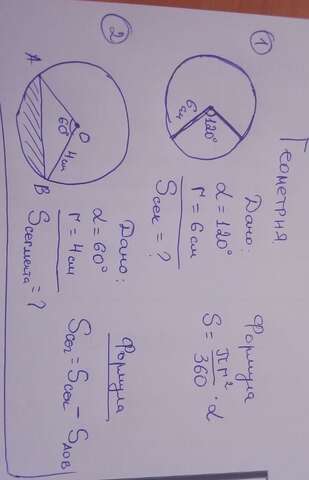 Геометрия
①
120°
6см
Дано:
α = 120°
r = 6 см
Sсек = ?
Формула
S = πr²/360 · α
②
A
O
60°
4см
B
Дано:
α = 60°
r = 4 см
Sсегмента = ?
Формула
Sсег = Sсек − SΔAOB